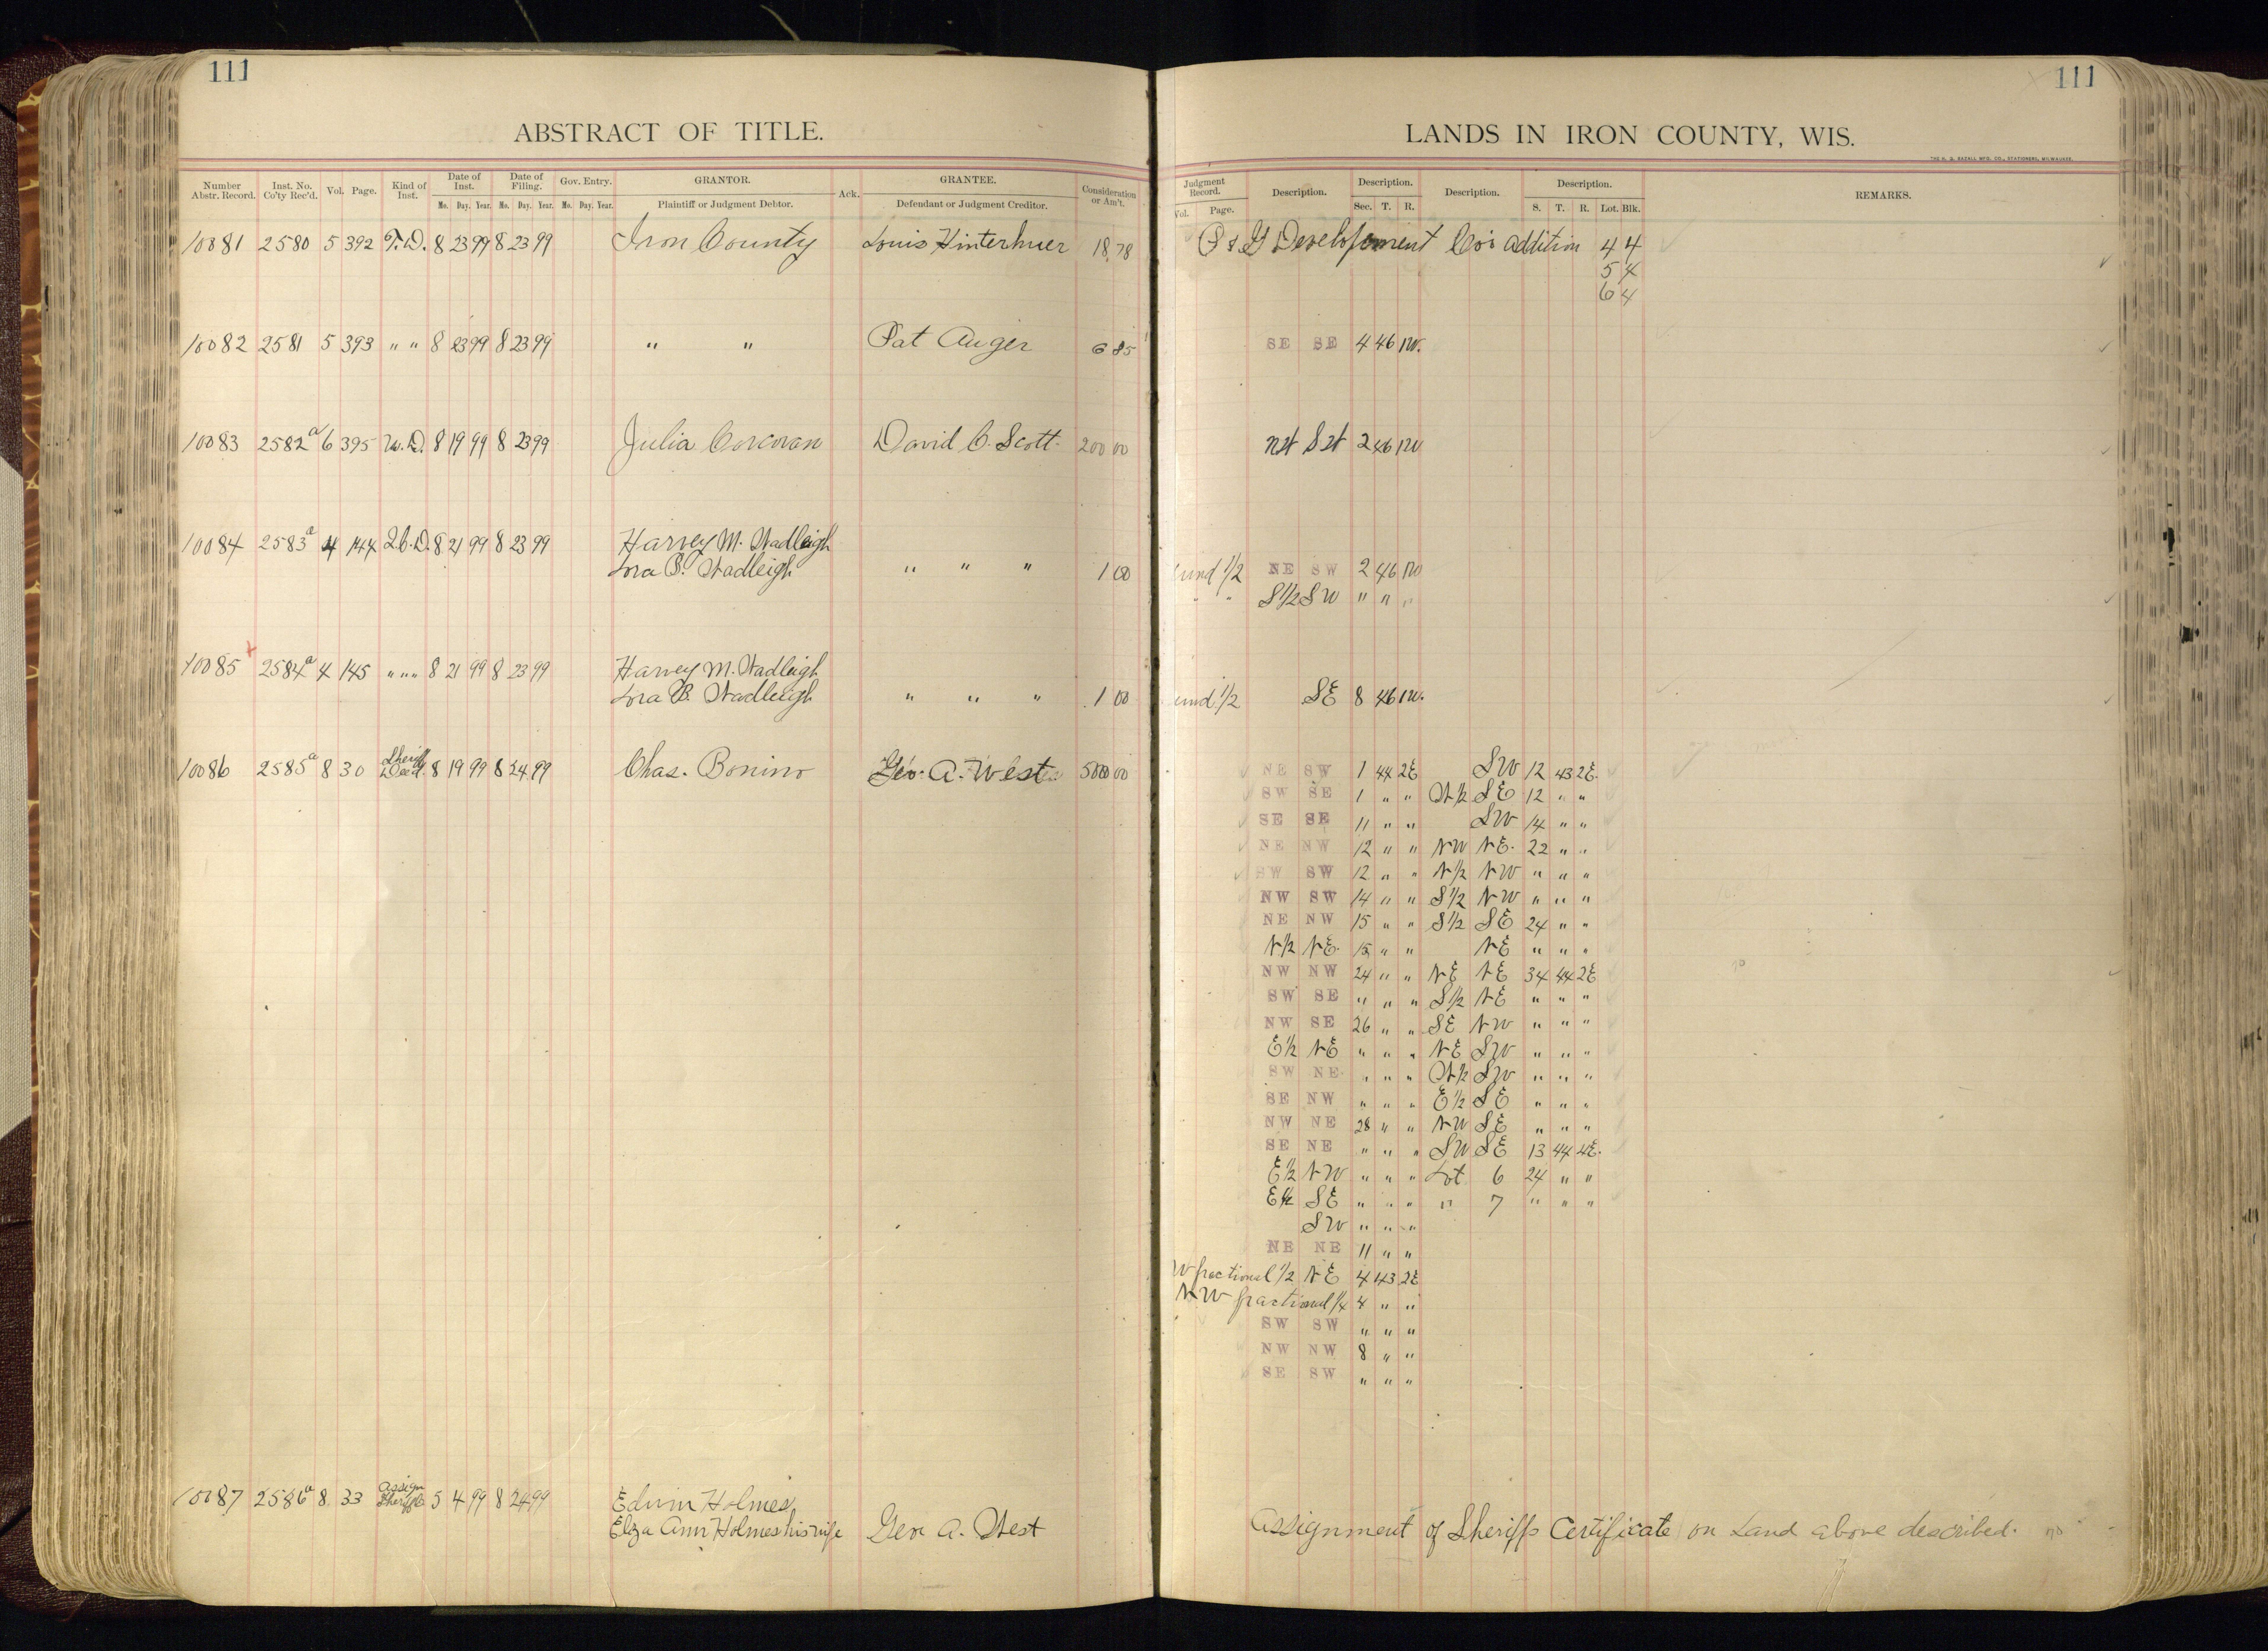 111
ABSTRACT OF TITLE.
Number Abstr. Record. Inst. No. Co'ty Rec'd. Vol. Page. Kind of Inst. Date of Inst. Mo. Day. Year. Date of Filing. Mo. Day. Year. Gov. Entry. Mo. Day. Year. GRANTOR. Plaintiff or Judgment Debtor. Ack. GRANTEE. Defendant or Judgment Creditor. Consideration or Am't.
10081 2580 5 392 T.D. 8 23 99 8 23 99 Iron County Louis Hinterhuer 18.78
10082 2581 5 393 " " 8 23 99 8 23 99 " " Pat Auger 6 85
10083 2582 a 6 395 W.D. 8 19 99 8 23 99 Julia Corcoran David C. Scott. 200 00
10084 2583 a 4 144 Q.C.D. 8 21 99 8 23 99 Harvey M. Wadleigh
Lora B. Wadleigh " " " 1 00
10085 2584 a 4 145 " " " 8 21 99 8 23 99 Harvey M. Wadleigh
Lora B. Wadleigh " " " 1 00
10086 2585 a 8 30 Sheriff Deed. 8 19 99 8 24 99 Chas. Bonino Geo. A. West 5000 00
10087 2586 a 8 33 Assign Sheriff 5 4 99 8 24 99 Edwin Holmes,
Eliza Ann Holmes his wife Geo. A. West
111
LANDS IN IRON COUNTY, WIS.
THE H. G. RAZALL MFG. CO., STATIONERS, MILWAUKEE.
Judgment Record. Vol. Page. Description. Description. Sec. T. R. Description. Description. S. T. R. Lot. Blk. REMARKS.
P & G Developement Co's Addition 4 4
5 4
6 4
SE SE 4 46 1W.
NW SW 2 46 1W
und 1/2 NE SW 2 46 1W
" " S1/2 SW " " "
und 1/2 SE 8 46 1W.
NE SW 1 44 2E SW 12 43 2E.
SW SE 1 " " W1/2 SE 12 " "
SE SE 11 " " SW 14 " "
NE NW 12 " " NW NE. 22 " "
SW SW 12 " " N1/2 NW " " "
NW SW 14 " " S1/2 NW " " "
NE NW 15 " " S1/2 SE 24 " "
N1/2 NE. 15 " " NE " " "
NW NW 24 " " NE NE 34 44 2E
SW SE " " " S1/2 NE " " "
NW SE 26 " " SE NW " " "
E1/2 NE " " " NE SW " " "
SW NE " " " W1/2 SW " " "
SE NW " " " E1/2 SE " " "
NW NE 28 " " NW SE " " "
SE NE " " " SW SE 13 44 4E.
E1/2 NW " " " Lot 6 24 " "
E1/2 SE " " " " 7 " " "
SW " " "
NE NE 11 " "
W fractional 1/2 NE 4 43 2E
NW fractional 1/4 4 " "
SW SW " " "
NW NW 8 " "
SE SW " " "
Assignment of Sheriffs Certificate on Land above described.